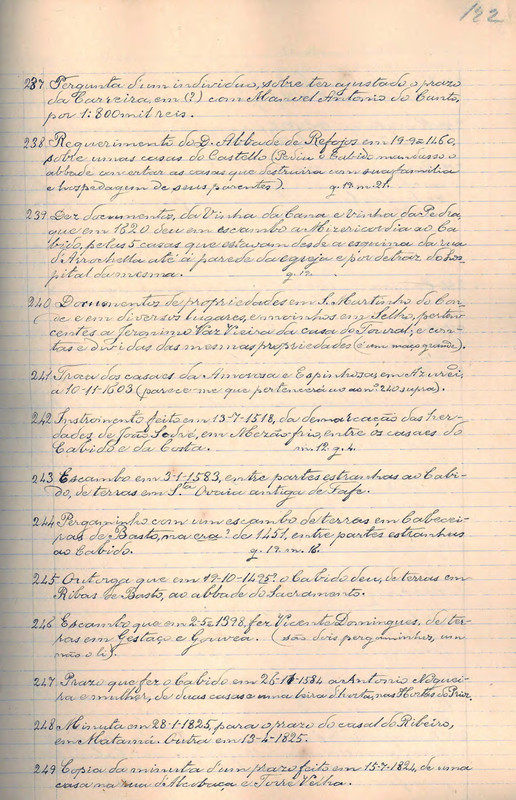 122
237 Pergunta d'um individuo, sobre ter ajustado o prazo
da Carreira, em (?) com Manoel Antonio do Canto,
por 1:800 mil reis.
238 Requerimento do D. Abbade de Refojos em 19-9-1460,
sobre umas casas do Castello (Pediu o Cabido mandasse o
abbade concertar as casas que destruira com sua familia
e hospedagem de seus parentes). g. 19. m. 21.
239 Dez documentos, da Vinha da Cana e Vinha da Pedra,
que em 1620 deu em escambo a Misericordia ao Ca-
bido, pelas 5 casas que estavam desde a esquina da rua
d'Arrochella até á parede da egreja e por detraz do hos-
pital da mesma. g. 12.
240 Documentos de propriedades em S. Martinho do Con-
de e em diversos lugares, e moinhos em Selho, perten-
centes a Jeronimo Vaz Vieira da casa do Toural; e con-
tas e dividas das mesmas propriedades (é um maço grande).
241 Troca dos casaes da Amorosa e Espinhosa, em Azurei,
a 10-11-1603 (parece-me que pertencerá ao nº 240 supra).
242 Instromento feito em 13-7-1518, da demarcação das her-
dades de João em Mezão-frio, entre os casaes do
Cabido e da Costa. m. 12. g. 4.
243 Escambo em 3-1-1583, entre partes estranhas ao Cabi-
do, de terras em Sta Ovaia antiga de Fafe.
244 Pergaminho com um escambo de terras em Cabecei-
ras de Basto, na era? de 1451, entre partes estranhas
ao Cabido. g. 19. m. 16.
245 Outorga que em 19-10-1495? o Cabido deu, de terras em
Ribas de Basto, ao abbade do Sacramento.
246 Escambo que em 2-5-1398, fez Vicente Domingues, de ter-
ras em Gestaço e Gouvea. (são dois pergaminhos, um
não o li).
247 Prazo que fez o Cabido em 26-11-1584 a Antonio Noguei-
ra e mulher, de duas casas e uma leira d'horta, nas Hortas do Prior.
248 Minuta em 28-1-1825, para o prazo do casal do Ribeiro,
em Matamá. Outra em 13-4-1825.
249 Copia da minuta d'um prazo feito em 15-7-1824, de uma
casa na rua d'Alcobaça e Torre Velha.